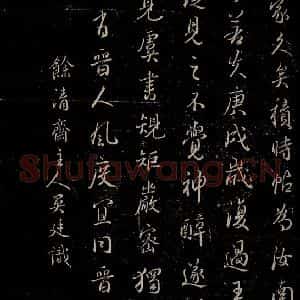 家久矣積時為汝南
庚戌歲復過王
復見之不覺神醉遂
見虞書規矩嚴密獨
有晉人風度宜同晉
餘清齋主人吳廷識
Shufawang.CN